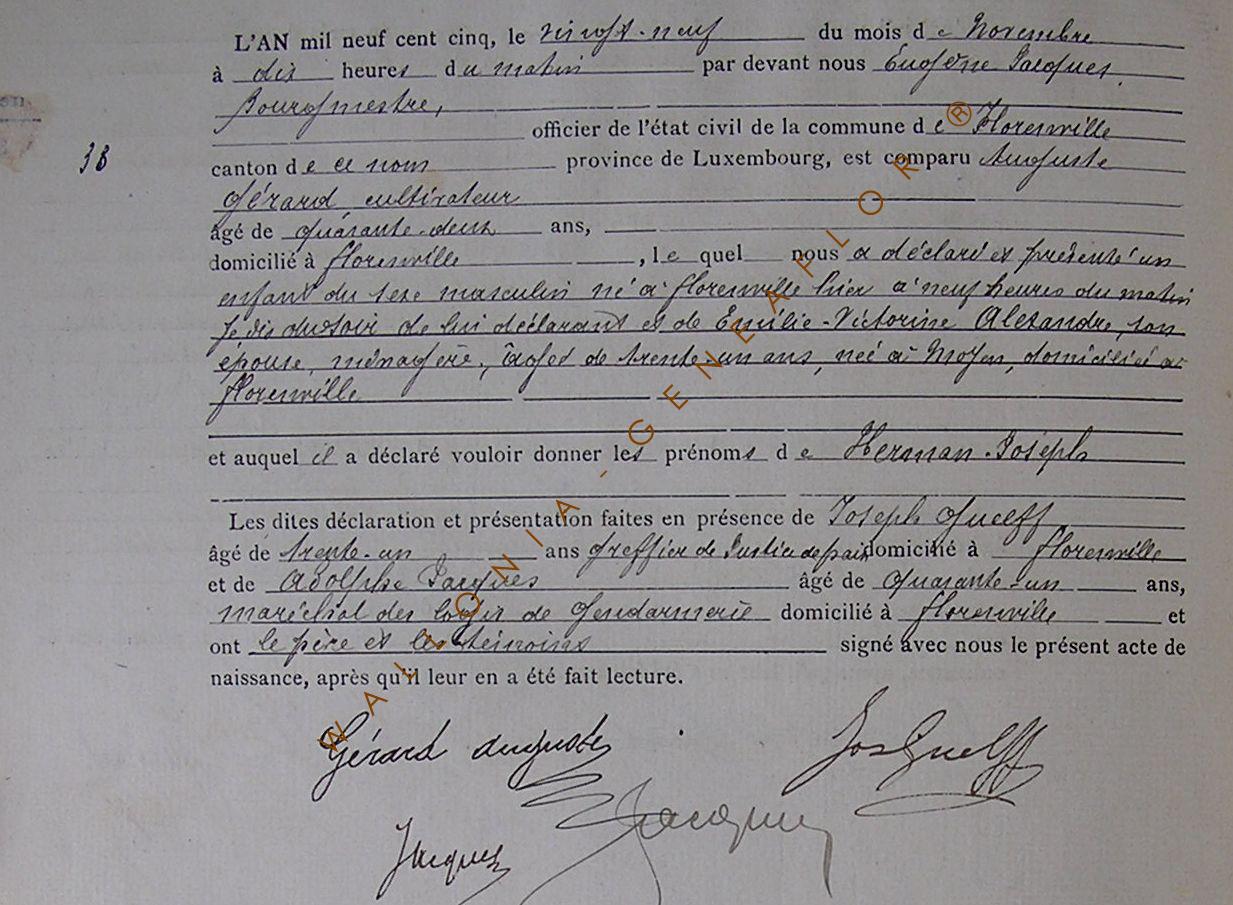 L'AN mil neuf cent cinq, le vingt-neuf du mois de Novembre
à dix heures du matin par devant nous Eugène Jacques,
Bourgmestre,
officier de l'état civil de la commune de Florenville
38
canton de ce nom province de Luxembourg, est comparu Auguste
Gérard, cultivateur
âgé de quarante-deux ans,
domicilié à Florenville, lequel nous a déclaré et présenté un
enfant du sexe masculin né à Florenville hier à neuf heures du matin
de lui déclarant et de Emilie-Victorine Alexandre, son
épouse, ménagère, âgée de trente-un ans, née à Moyen, domiciliée à
Florenville
et auquel il a déclaré vouloir donner les prénoms de Herman-Joseph
Les dites déclaration et présentation faites en présence de Joseph Guelff
âgé de trente-un ans greffier de Justice de paix domicilié à Florenville
et de Adolphe Jacques âgé de quarante-un ans,
maréchal des logis de Gendarmerie domicilié à Florenville et
ont le père et les témoins signé avec nous le présent acte de
naissance, après qu'il leur en a été fait lecture.
Gérard Auguste
Jos Guelff
Jacques
Jacques
WALLONIA-GENEAFLOR®